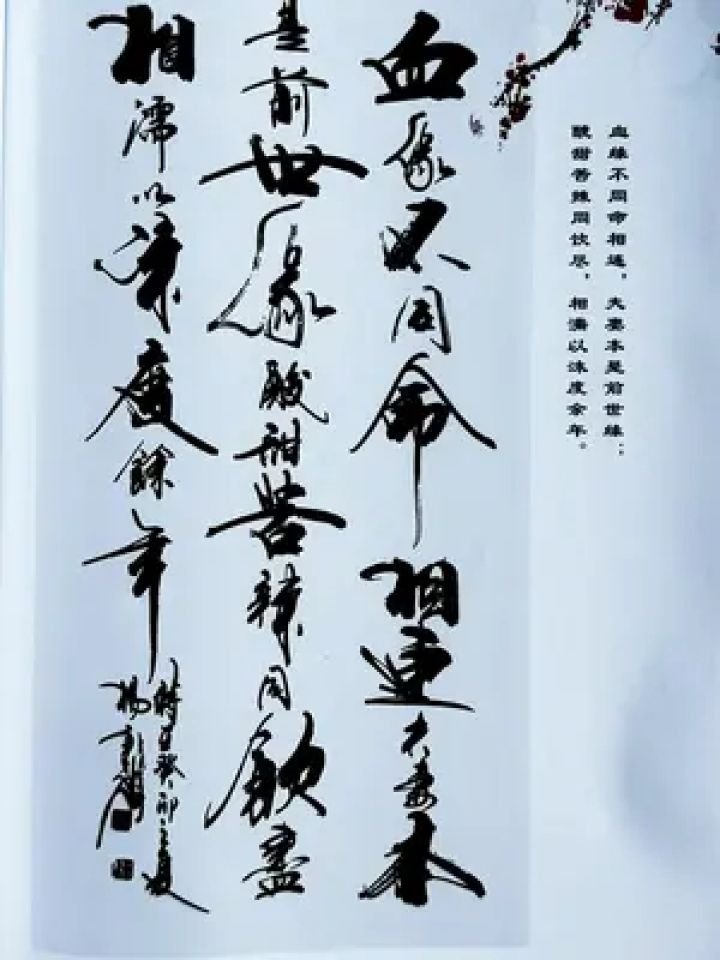 血缘不同命相连，夫妻本是前世缘；
酸甜苦辣同饮尽，相濡以沫度余年。
血缘不同命相連夫妻本
是前世缘酸甜苦辣同飲盡
相濡以沫度餘年
癸卯之夏
楊